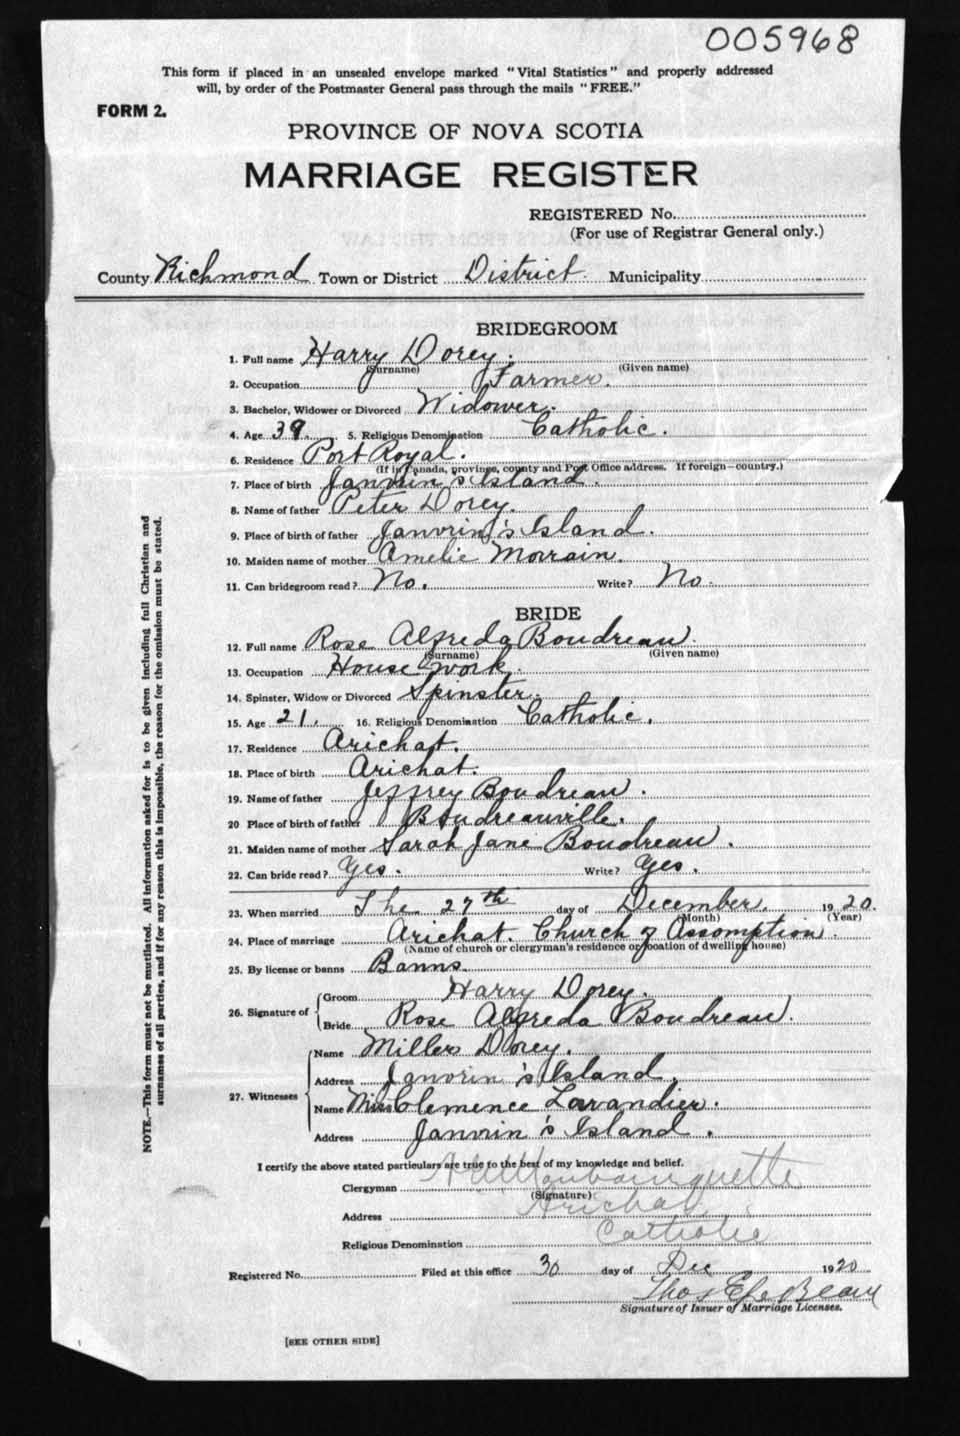 005968
This form if placed in an unsealed envelope marked "Vital Statistics" and properly addressed
will, by order of the Postmaster General pass through the mails "FREE."
FORM 2.
PROVINCE OF NOVA SCOTIA
MARRIAGE REGISTER
REGISTERED No.
(For use of Registrar General only.)
County Richmond Town or District District Municipality
BRIDEGROOM
1. Full name Harry Dorey.
(Surname) (Given name)
2. Occupation Farmer.
3. Bachelor, Widower or Divorced Widower.
4. Age 39. 5. Religious Denomination Catholic.
6. Residence Port Royal.
(If in Canada, province, county and Post Office address. If foreign—country.)
7. Place of birth Janvrin's Island.
8. Name of father Peter Dorey.
9. Place of birth of father Janvrin's Island.
10. Maiden name of mother Amelie Morrain.
11. Can bridegroom read? No. Write? No.
BRIDE
12. Full name Rose Alfreda Boudreau.
(Surname) (Given name)
13. Occupation House work.
14. Spinster, Widow or Divorced Spinster.
15. Age 21. 16. Religious Denomination Catholic.
17. Residence Arichat.
18. Place of birth Arichat.
19. Name of father Jeffrey Boudreau.
20 Place of birth of father Boudreauville.
21. Maiden name of mother Sarah Jane Boudreau.
22. Can bride read? Yes. Write? Yes.
23. When married The 27th day of December. 1920.
(Month) (Year)
24. Place of marriage Arichat. Church of Assomption.
(Name of church or clergyman's residence or location of dwelling house)
25. By license or banns Banns.
26. Signature of Groom Harry Dorey.
Bride Rose Alfreda Boudreau.
27. Witnesses Name Miller Dorey.
Address Janvrin's Island.
Name Miss Clemence Lavandier.
Address Janvrin's Island.
I certify the above stated particulars are true to the best of my knowledge and belief.
Clergyman
(Signature)
Address Arichat
Religious Denomination Catholic
Registered No. Filed at this office 30 day of Dec 1920
Thos LeBlanc
Signature of Issuer of Marriage Licenses.
[SEE OTHER SIDE]
NOTE.—This form must not be mutilated. All information asked for is to be given including full Christian and
surnames of all parties, and if for any reason this is impossible, the reason for the omission must be stated.